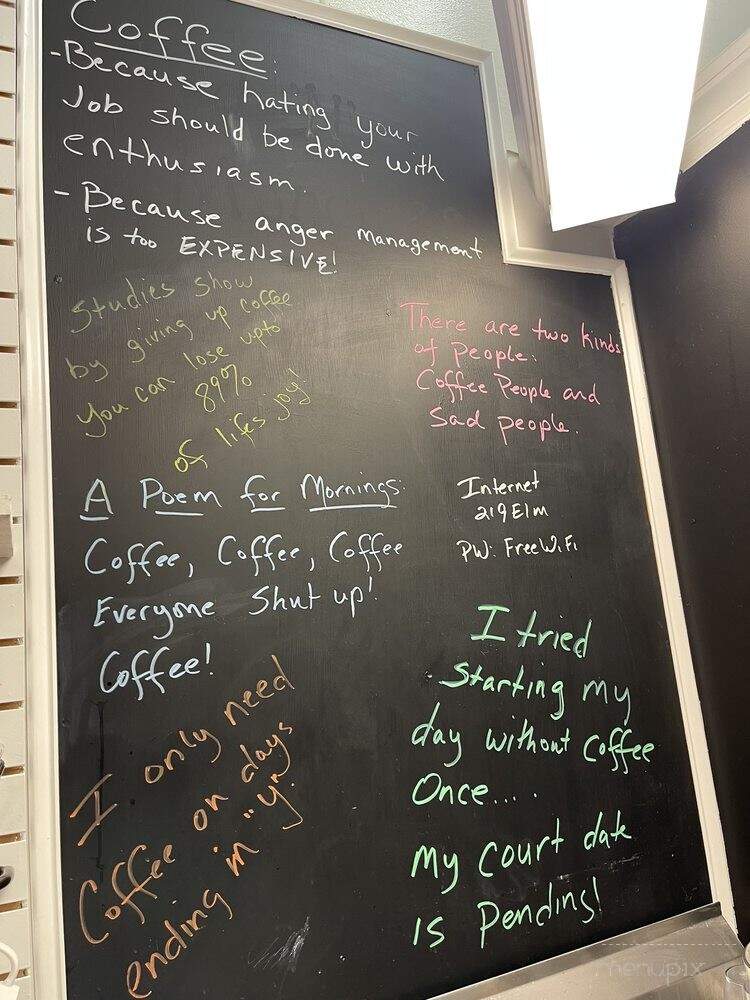 Coffee:
- Because hating your
Job should be done with
enthusiasm.
- Because anger management
is too EXPENSIVE!
Studies show
by giving up coffee
you can lose upto
89%
of lifes joy!
There are two kinds
of people:
Coffee People and
Sad people.
A Poem for Mornings:
Coffee, Coffee, Coffee
Everyone Shut up!
Coffee!
Internet
219Elm
PW: FreeWiFi
I only need
Coffee on days
ending in "y"
I tried
Starting my
day without Coffee
Once....
My court date
is Pending!
menupix